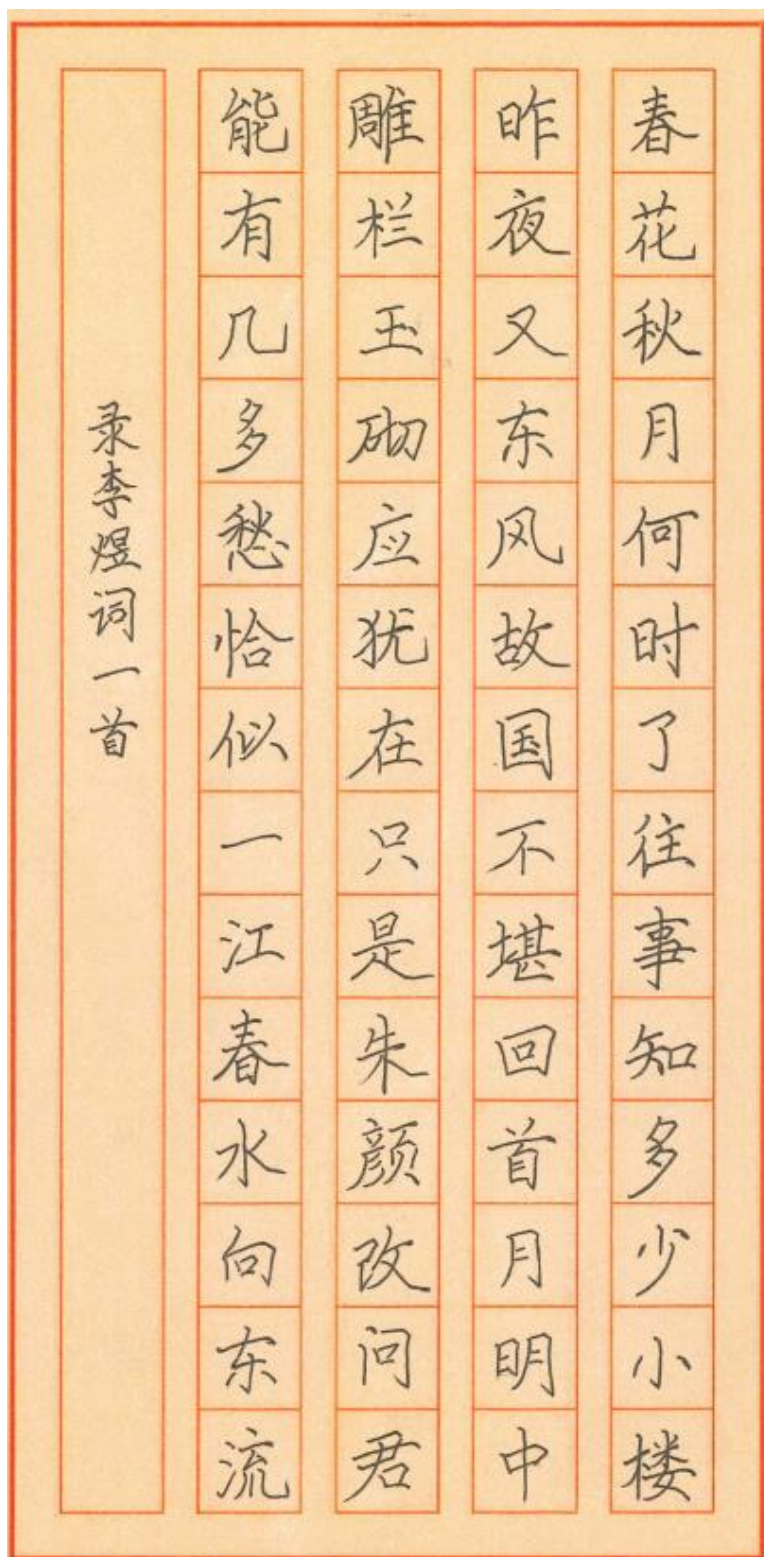 春花秋月何时了往事知多少小楼
昨夜又东风故国不堪回首月明中
雕栏玉砌应犹在只是朱颜改问君
能有几多愁恰似一江春水向东流
录李煜词一首